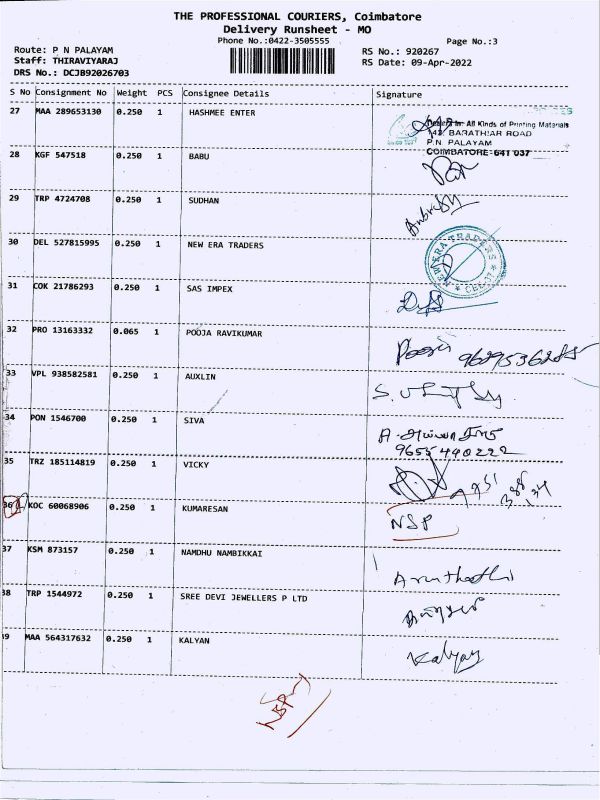 THE PROFESSIONAL COURIERS, Coimbatore
Delivery Runsheet - MO
Phone No.:0422-3505555
Page No.:3
Route: P N PALAYAM
Staff: THIRAVIYARAJ
DRS No.: DCJB92026703
RS No.: 920267
RS Date: 09-Apr-2022
S No Consignment No Weight PCS Consignee Details Signature
27 MAA 289653130 0.250 1 HASHMEE ENTER
Dealers in: All Kinds of Printing Materials
142, BARATHIAR ROAD
P.N. PALAYAM
COIMBATORE-641 037
28 KGF 547518 0.250 1 BABU
29 TRP 4724708 0.250 1 SUDHAN
30 DEL 527815995 0.250 1 NEW ERA TRADERS
NEW ERA TRADERS
31 COK 21786293 0.250 1 SAS IMPEX
32 PRO 13163332 0.065 1 POOJA RAVIKUMAR
33 VPL 938582581 0.250 1 AUXLIN
34 PON 1546700 0.250 1 SIVA
9655440222
35 TRZ 185114819 0.250 1 VICKY
36 KOC 60068906 0.250 1 KUMARESAN NSP
37 KSM 873157 0.250 1 NAMDHU NAMBIKKAI
38 TRP 1544972 0.250 1 SREE DEVI JEWELLERS P LTD
39 MAA 564317632 0.250 1 KALYAN Kalyan